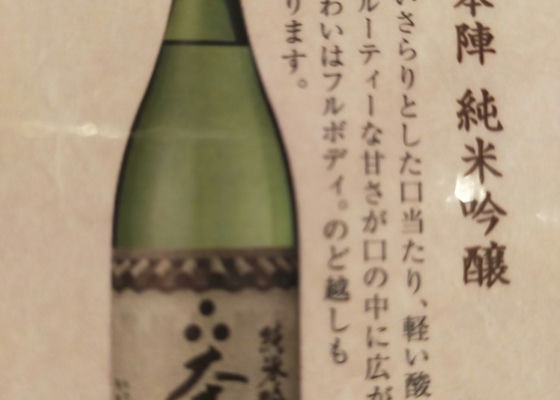 本陣 純米吟醸
いさらりとした口当たり、軽い酸
ルーティーな甘さが口の中に広が
わいはフルボディ。のど越しも
ります。
純米吟